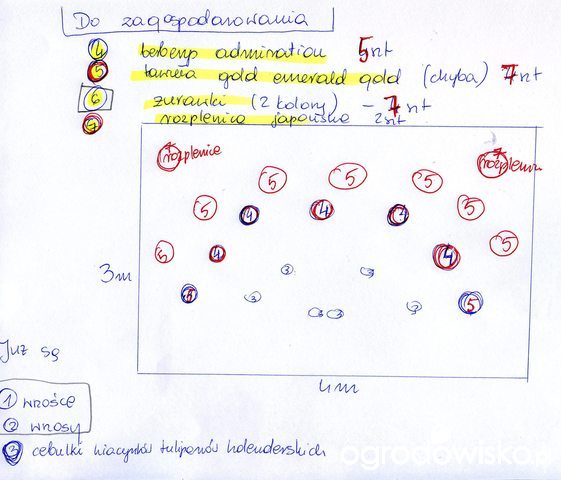 Do zagospodarowania
4 berberys admiration 5 szt
5 tawuła gold emerald gold (chyba) 7 szt
6 żurawki (2 kolory) - 7 szt
7 rozplenica japońska 2 szt
rozplenice rozplenica
5 5 5
5 4 4 5
5 4 4 5
3 3
3m 5 3 3 5
3 3
4m
Już są
1 wrośce
2 wrzosy
3 cebulki hiacyntów tulipanów holenderskich
ogrodowisko